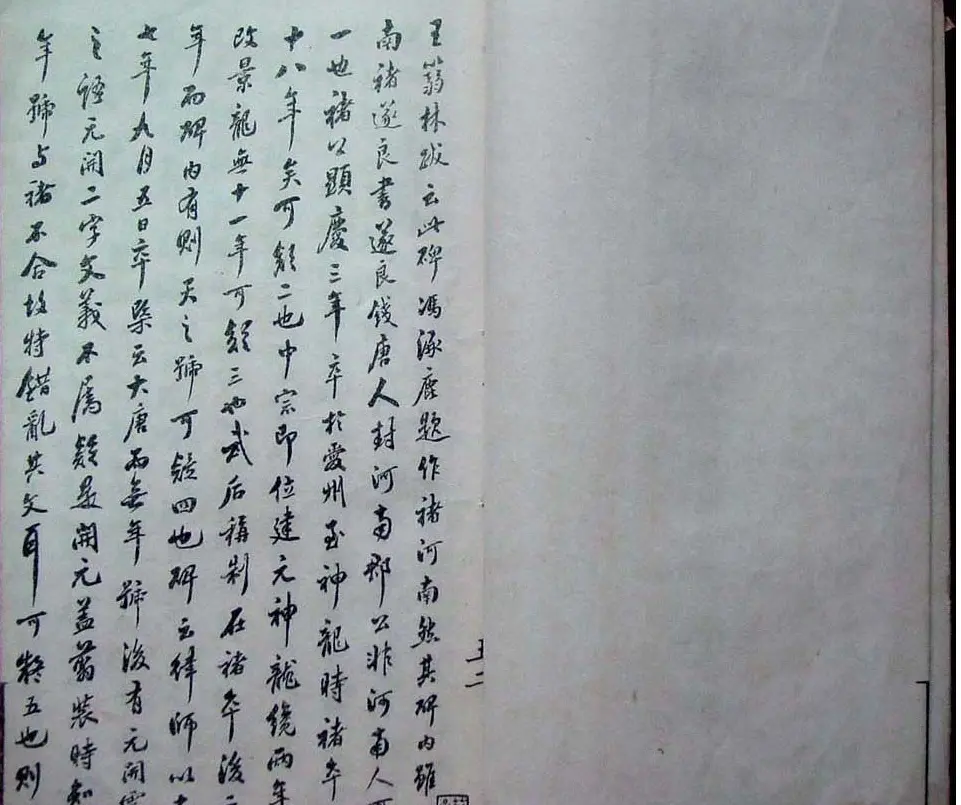 王蒻林跋云此碑馮涿鹿題作褚河南然其碑内雖
南褚遂良書遂良錢唐人封河南郡公非河南人可
一也褚公顯慶三年卒於愛州至神龍時褚卒
十八年矣可疑二也中宗即位建元神龍纔兩年
改景龍無十一年可疑三也武后稱制在褚卒後二
年而碑内有則天之號可疑四也碑云律師以
七年九月五日卒槩云大唐而無年號後有元開
之語元開二字文義不屬疑是開元蓋翦裝時知
年號与褚不合故特錯亂其文耳可疑五也則
五二